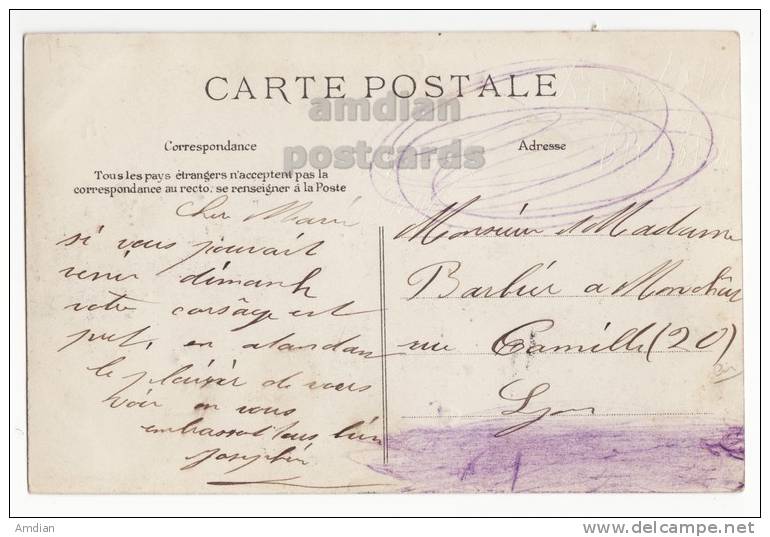 CARTE POSTALE
amdian
postcards
Correspondance
Adresse
Tous les pays étrangers n'acceptent pas la
correspondance au recto, se renseigner à la Poste
Cher Marie
si vous pouvait
venir dimanh
votre corsâge est
pret, en atandan
le plaisir de vous
voir on vous
embrassot tous bien
Josephin
Monsieur et Madame
Barbier a Monchat
rue Camille (20)
Lyon
Amdian
http://www.delcampe.net